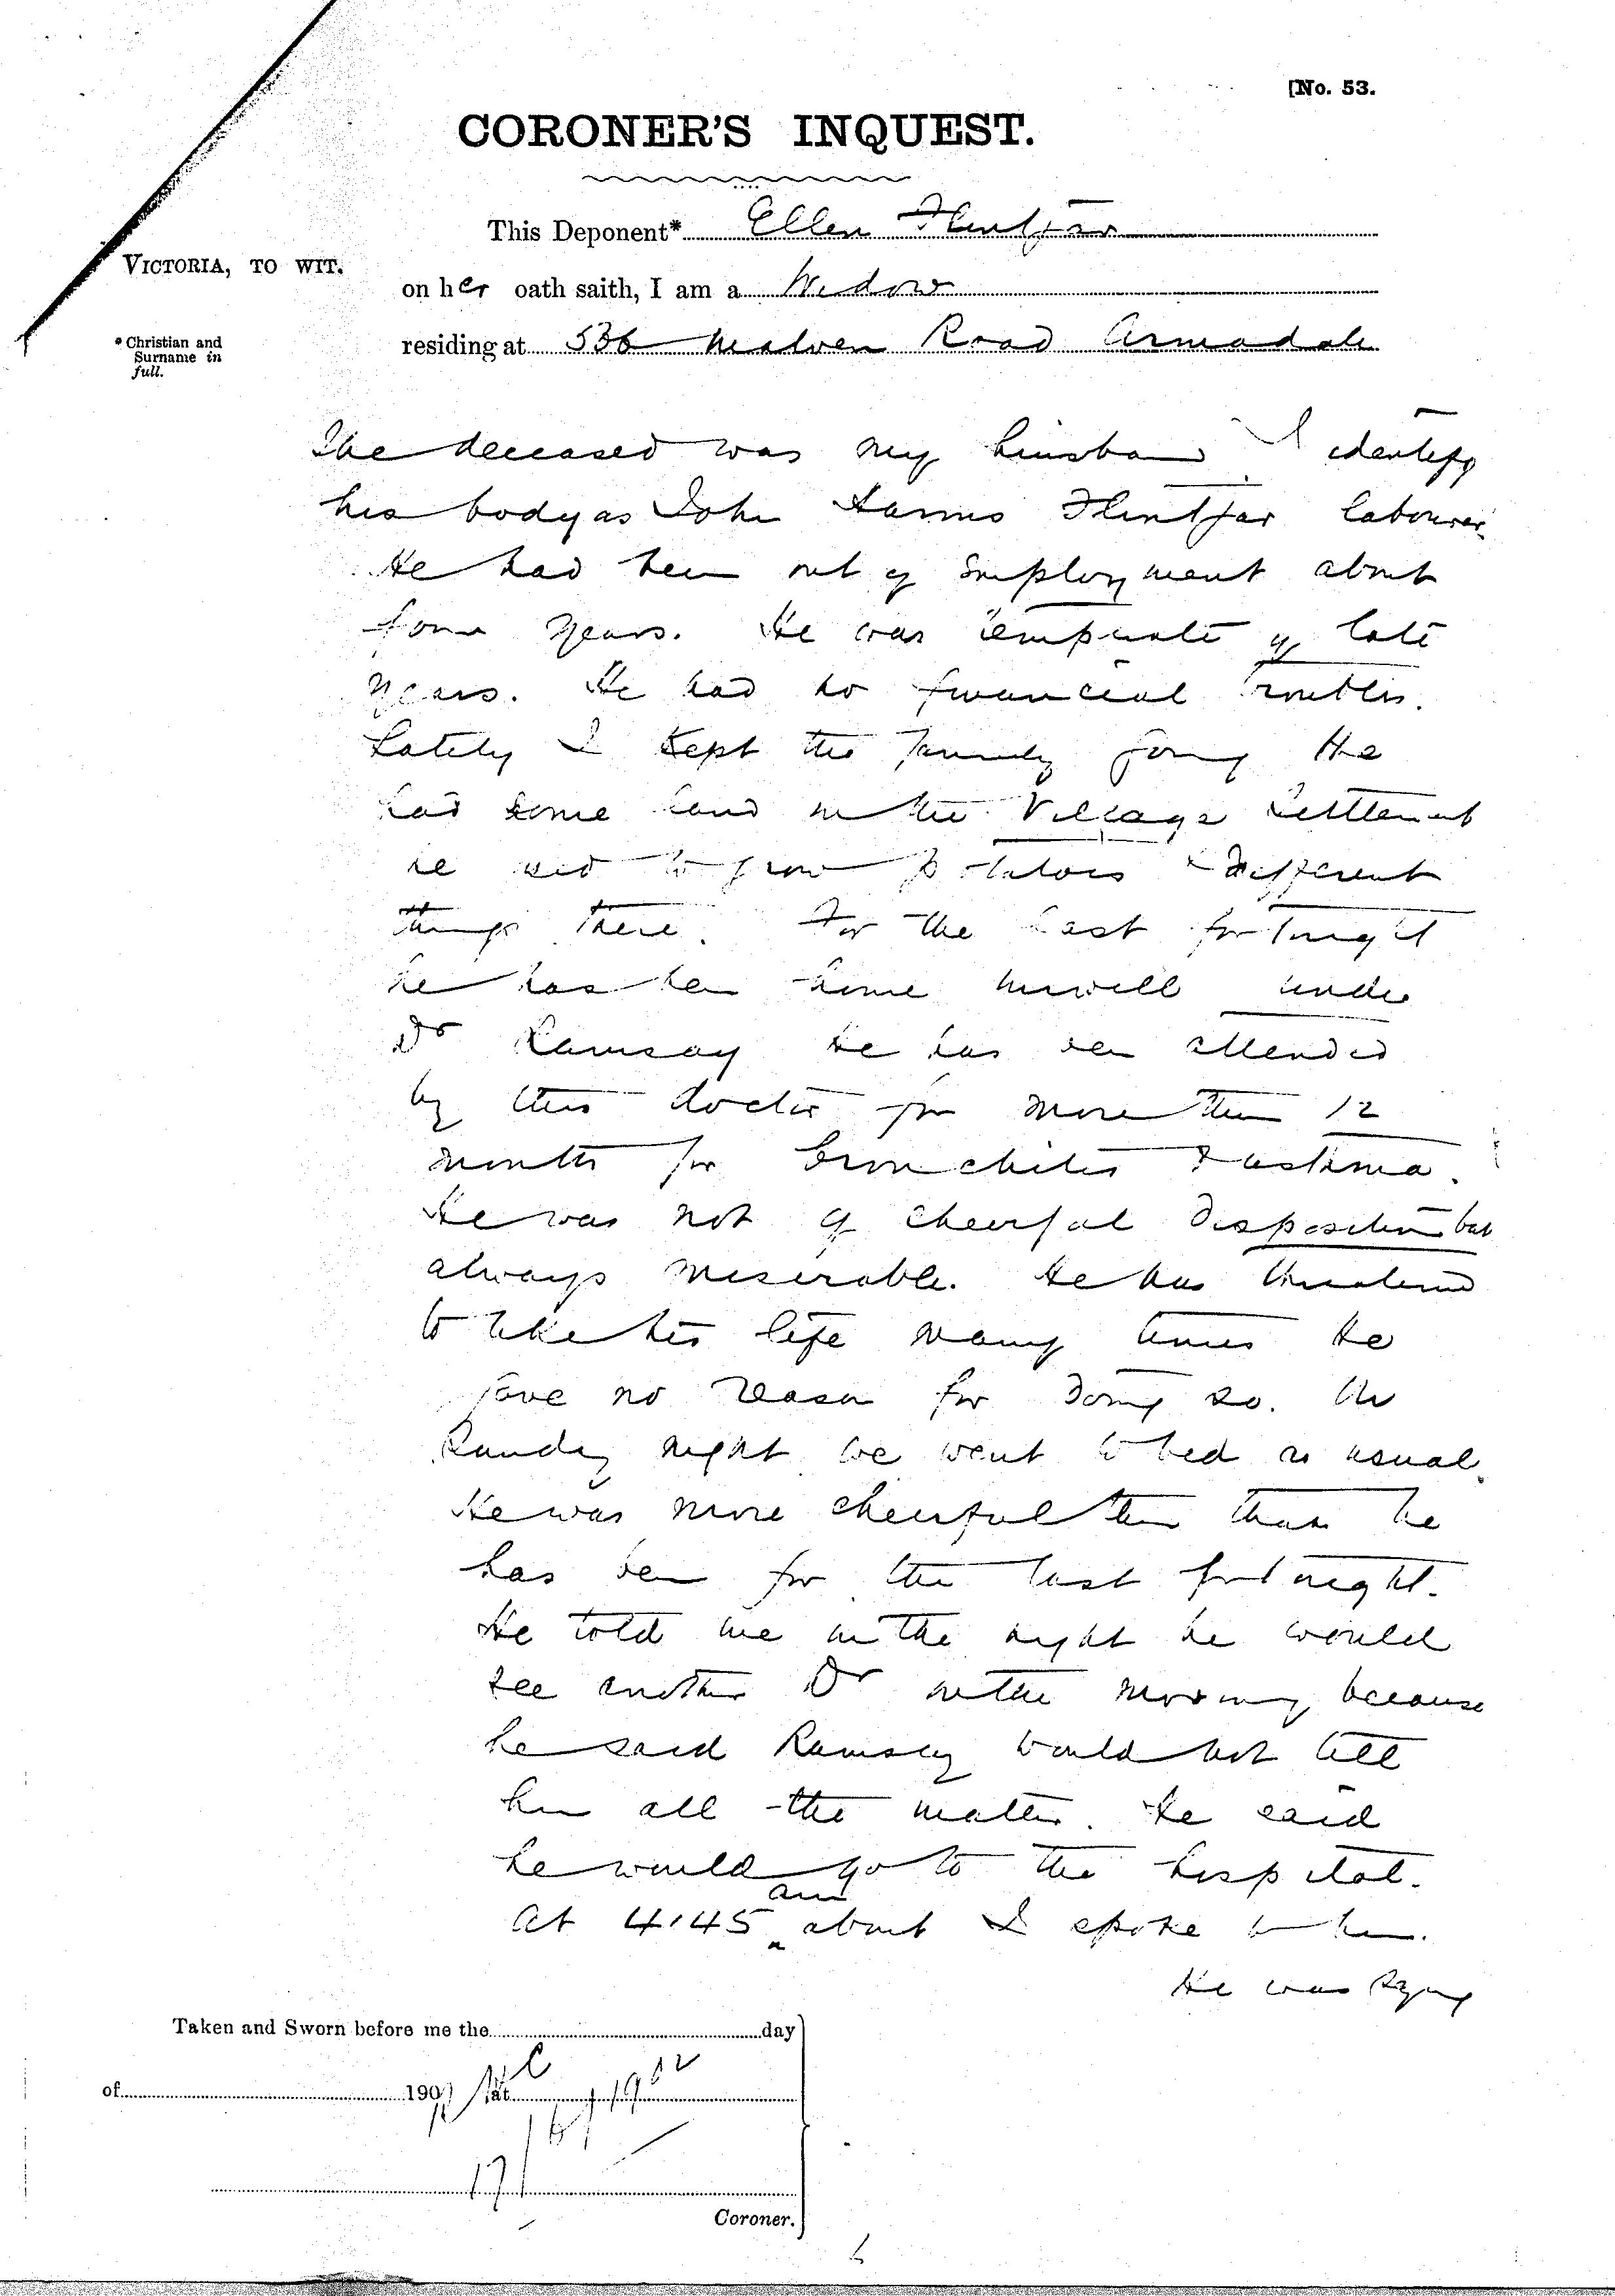 [No. 53.
CORONER'S INQUEST.
This Deponent* Ellen Flintjar
VICTORIA, TO WIT.
on her oath saith, I am a Widow
* Christian and
Surname in
full.
residing at 536 Malvern Road Armadale
The deceased was my husband. I identify
his body as John Harris Flintjar labourer.
He had been out of employment about
four years. He was temperate of late
years. He had no financial troubles.
Lately I kept the family going He
had some land in the Village Settlement
he used to grow potatoes & different
things there. For the last fortnight
he has been home unwell under
Dr Ramsay He has been attended
by this doctor for more than 12
months for bronchitis & asthma.
He was not of cheerful disposition but
always miserable. He has threatened
to take his life many times He
gave no reason for doing so. On
Sunday night we went to bed as usual.
He was more cheerful then than he
has been for the last fortnight.
He told me in the night he would
see another Dr in the morning because
he said Ramsay would not tell
him all the matter. He said
he would go to the hospital.
At 4.45 am about I spoke to him.
He was lying
Taken and Sworn before me the day
of 190 at
Coroner.